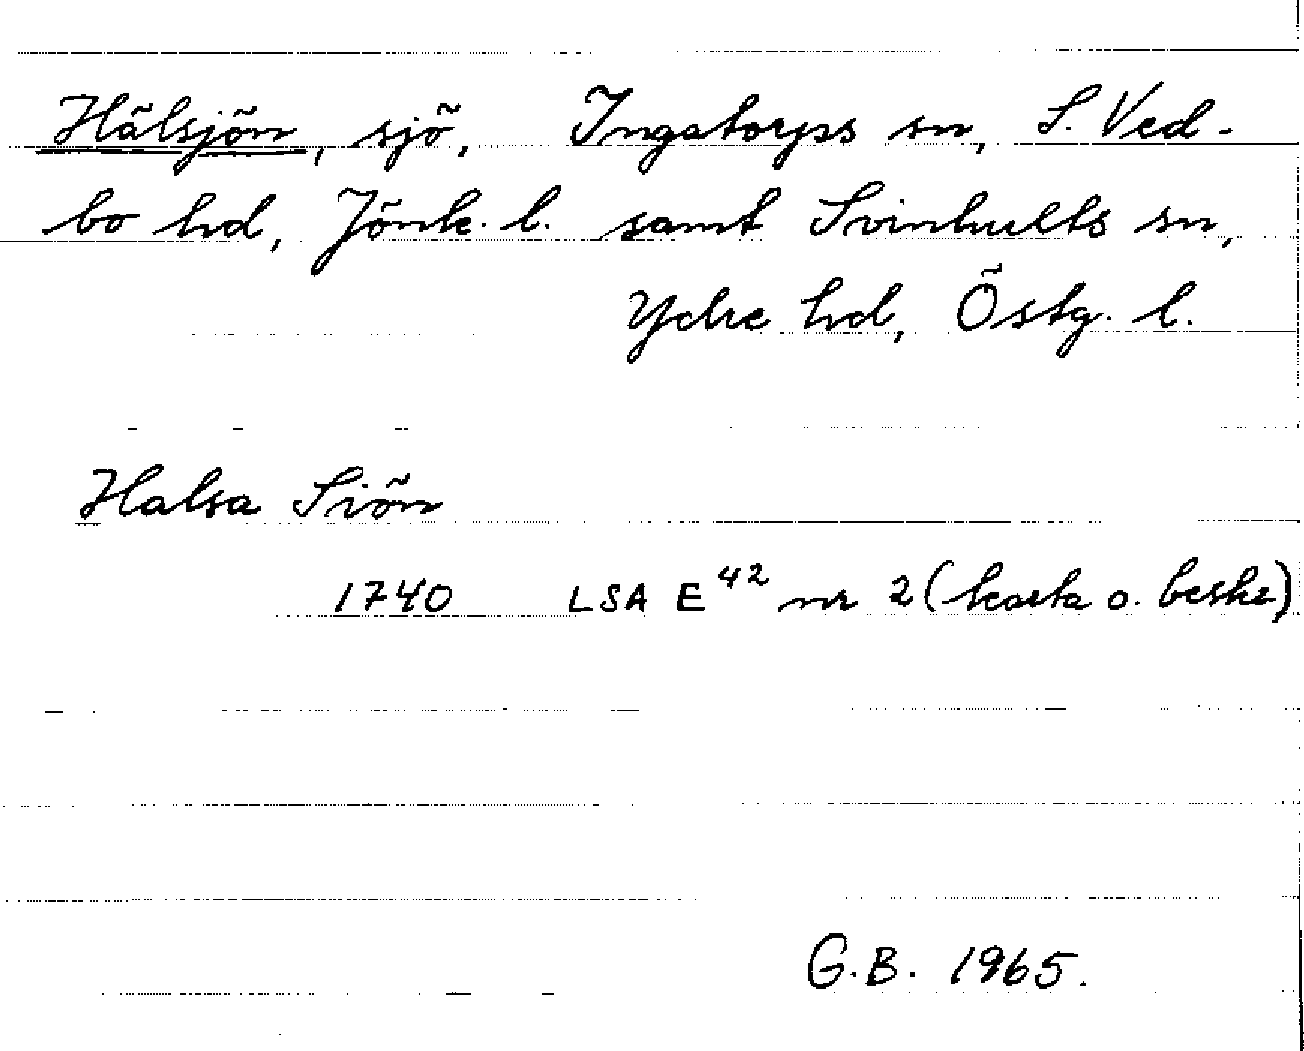 Hälsjön, sjö, Ingatorps sn, S. Ved-
bo hd, Jönk. l. samt Svinhults sn,
Ydre hd, Östg. l.
Halsa Siön
1740 LSA E⁴² nr 2 (karta o. beskr)
G.B. 1965.